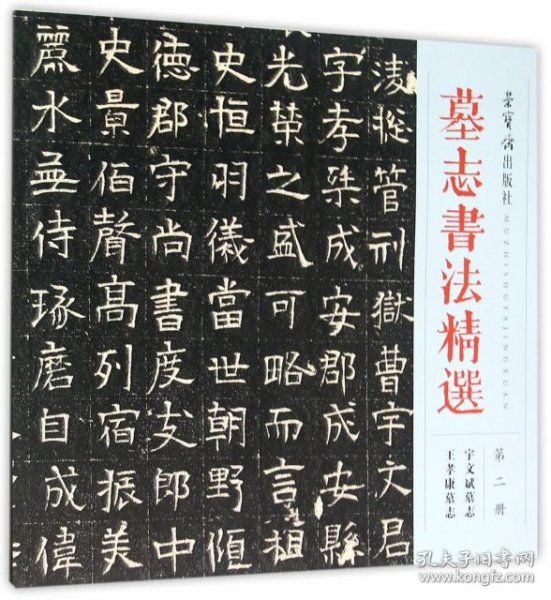 淩揔管刑獄曹宇文君
字孝桀成安郡成安縣
光榮之盛可略而言祖
史恒羽儀當世朝野傾
德郡守尚書度支郎中
史景伯聲高列宿振美
麗水並侍琢磨自成偉
榮寶齋出版社
墓志書法精選
MUZHISHUFAJINGXUAN
第二册
宇文斌墓志
王孝康墓志
孔夫子旧书网
www.kongfz.com